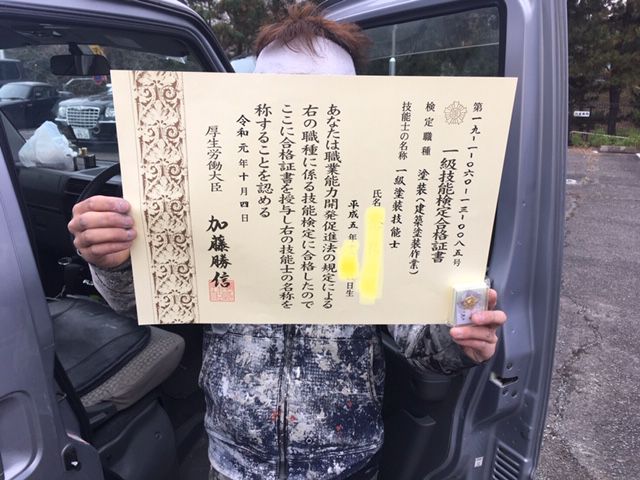 第一九-一-一〇六〇-一三-〇〇八五号
一級技能検定合格証書
検定職種 塗装(建築塗装作業)
技能士の名称 一級塗装技能士
氏名
平成五年
日生
あなたは職業能力開発促進法の規定による
右の職種に係る技能検定に合格したので
ここに合格証書を授与し右の技能士の名称を
称することを認める
令和元年十月四日
厚生労働大臣 加藤勝信